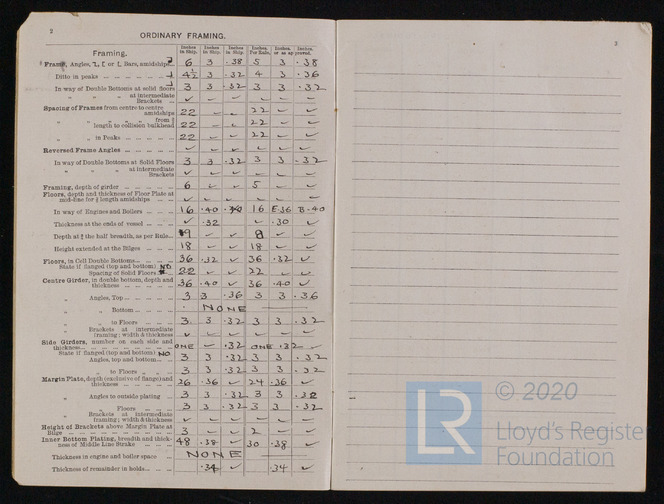 2
ORDINARY FRAMING.
3
Framing.
Inches in Ship. Inches in Ship. Inches in Ship. Inches Per Rule. Inches or as ap Inches. proved.
Frame, Angles, Bars, amidships 6 3 .38 5 3 .38
Ditto in peaks 4½ 3 .32 4 3 .36
In way of Double Bottoms at solid floors 3 3 .32 3 3 .32
" " " at intermediate
Brackets ✓ ✓ ✓ ✓ ✓ ✓
Spacing of Frames from centre to centre
amidships 22 – – 22 – –
" " " from
length to collision bulkhead 22 – – 22 – –
" " in Peaks 22 – – 22 – –
Reversed Frame Angles ✓ ✓ ✓ ✓ ✓ ✓
In way of Double Bottoms at Solid Floors 3 3 .32 3 3 .32
" " " at Intermediate
Brackets ✓ – – – – –
Framing, depth of girder 6 ✓ ✓ 5 – –
Floors, depth and thickness of Floor Plate at
mid-line for ¾ length amidships ✓ ✓ ✓ ✓ ✓ ✓
In way of Engines and Boilers 16 .40 16 E.36 B.40
Thickness at the ends of vessel ✓ .32 – .30 ✓
Depth at ¾ the half breadth, as per Rule 9 ✓ ✓ 8 ✓ ✓
Height extended at the Bilges 18 ✓ ✓ 18 ✓ ✓
Floors, in Cell Double Bottoms 36 .32 ✓ 36 .32 ✓
State if flanged (top and bottom) NO
Spacing of Solid Floors 22 ✓ ✓ 22 ✓ ✓
Centre Girder, in double bottom, depth and
thickness 36 .40 ✓ 36 .40 ✓
" Angles, Top 3 3 .36 3 3 .36
" " Bottom NONE
" " in Floors 3 3 .32 3 3 .32
" Brackets at intermediate
framing; width & thickness ✓ ✓ ✓ ✓ ✓ ✓
Side Girders, number on each side and
thickness ONE ✓ .32 ONE .32 ✓
State if flanged (top and bottom) NO
Angles, top and bottom 3 3 .32 3 3 .32
" to Floors 3 3 .32 3 3 .32
Margin Plate, depth (exclusive of flange) and
thickness 26 .36 ✓ 24 .36 ✓
" Angles to outside plating 3 3 .32 3 3 .32
" " Floors 3 3 .32 3 3 .32
" Brackets at intermediate
framing; width & thickness ✓ ✓ ✓ ✓ ✓ ✓
Height of Brackets above Margin Plate at
Bilge 3 – – 2 – –
Inner Bottom Plating, breadth and thick-
ness of Middle Line Strake 48 .38 ✓ 30 .38 ✓
Thickness in engine and boiler space NONE
Thickness of remainder in holds .34 ✓ .34 ✓
LR
© 2020
Lloyd's Register
Foundation